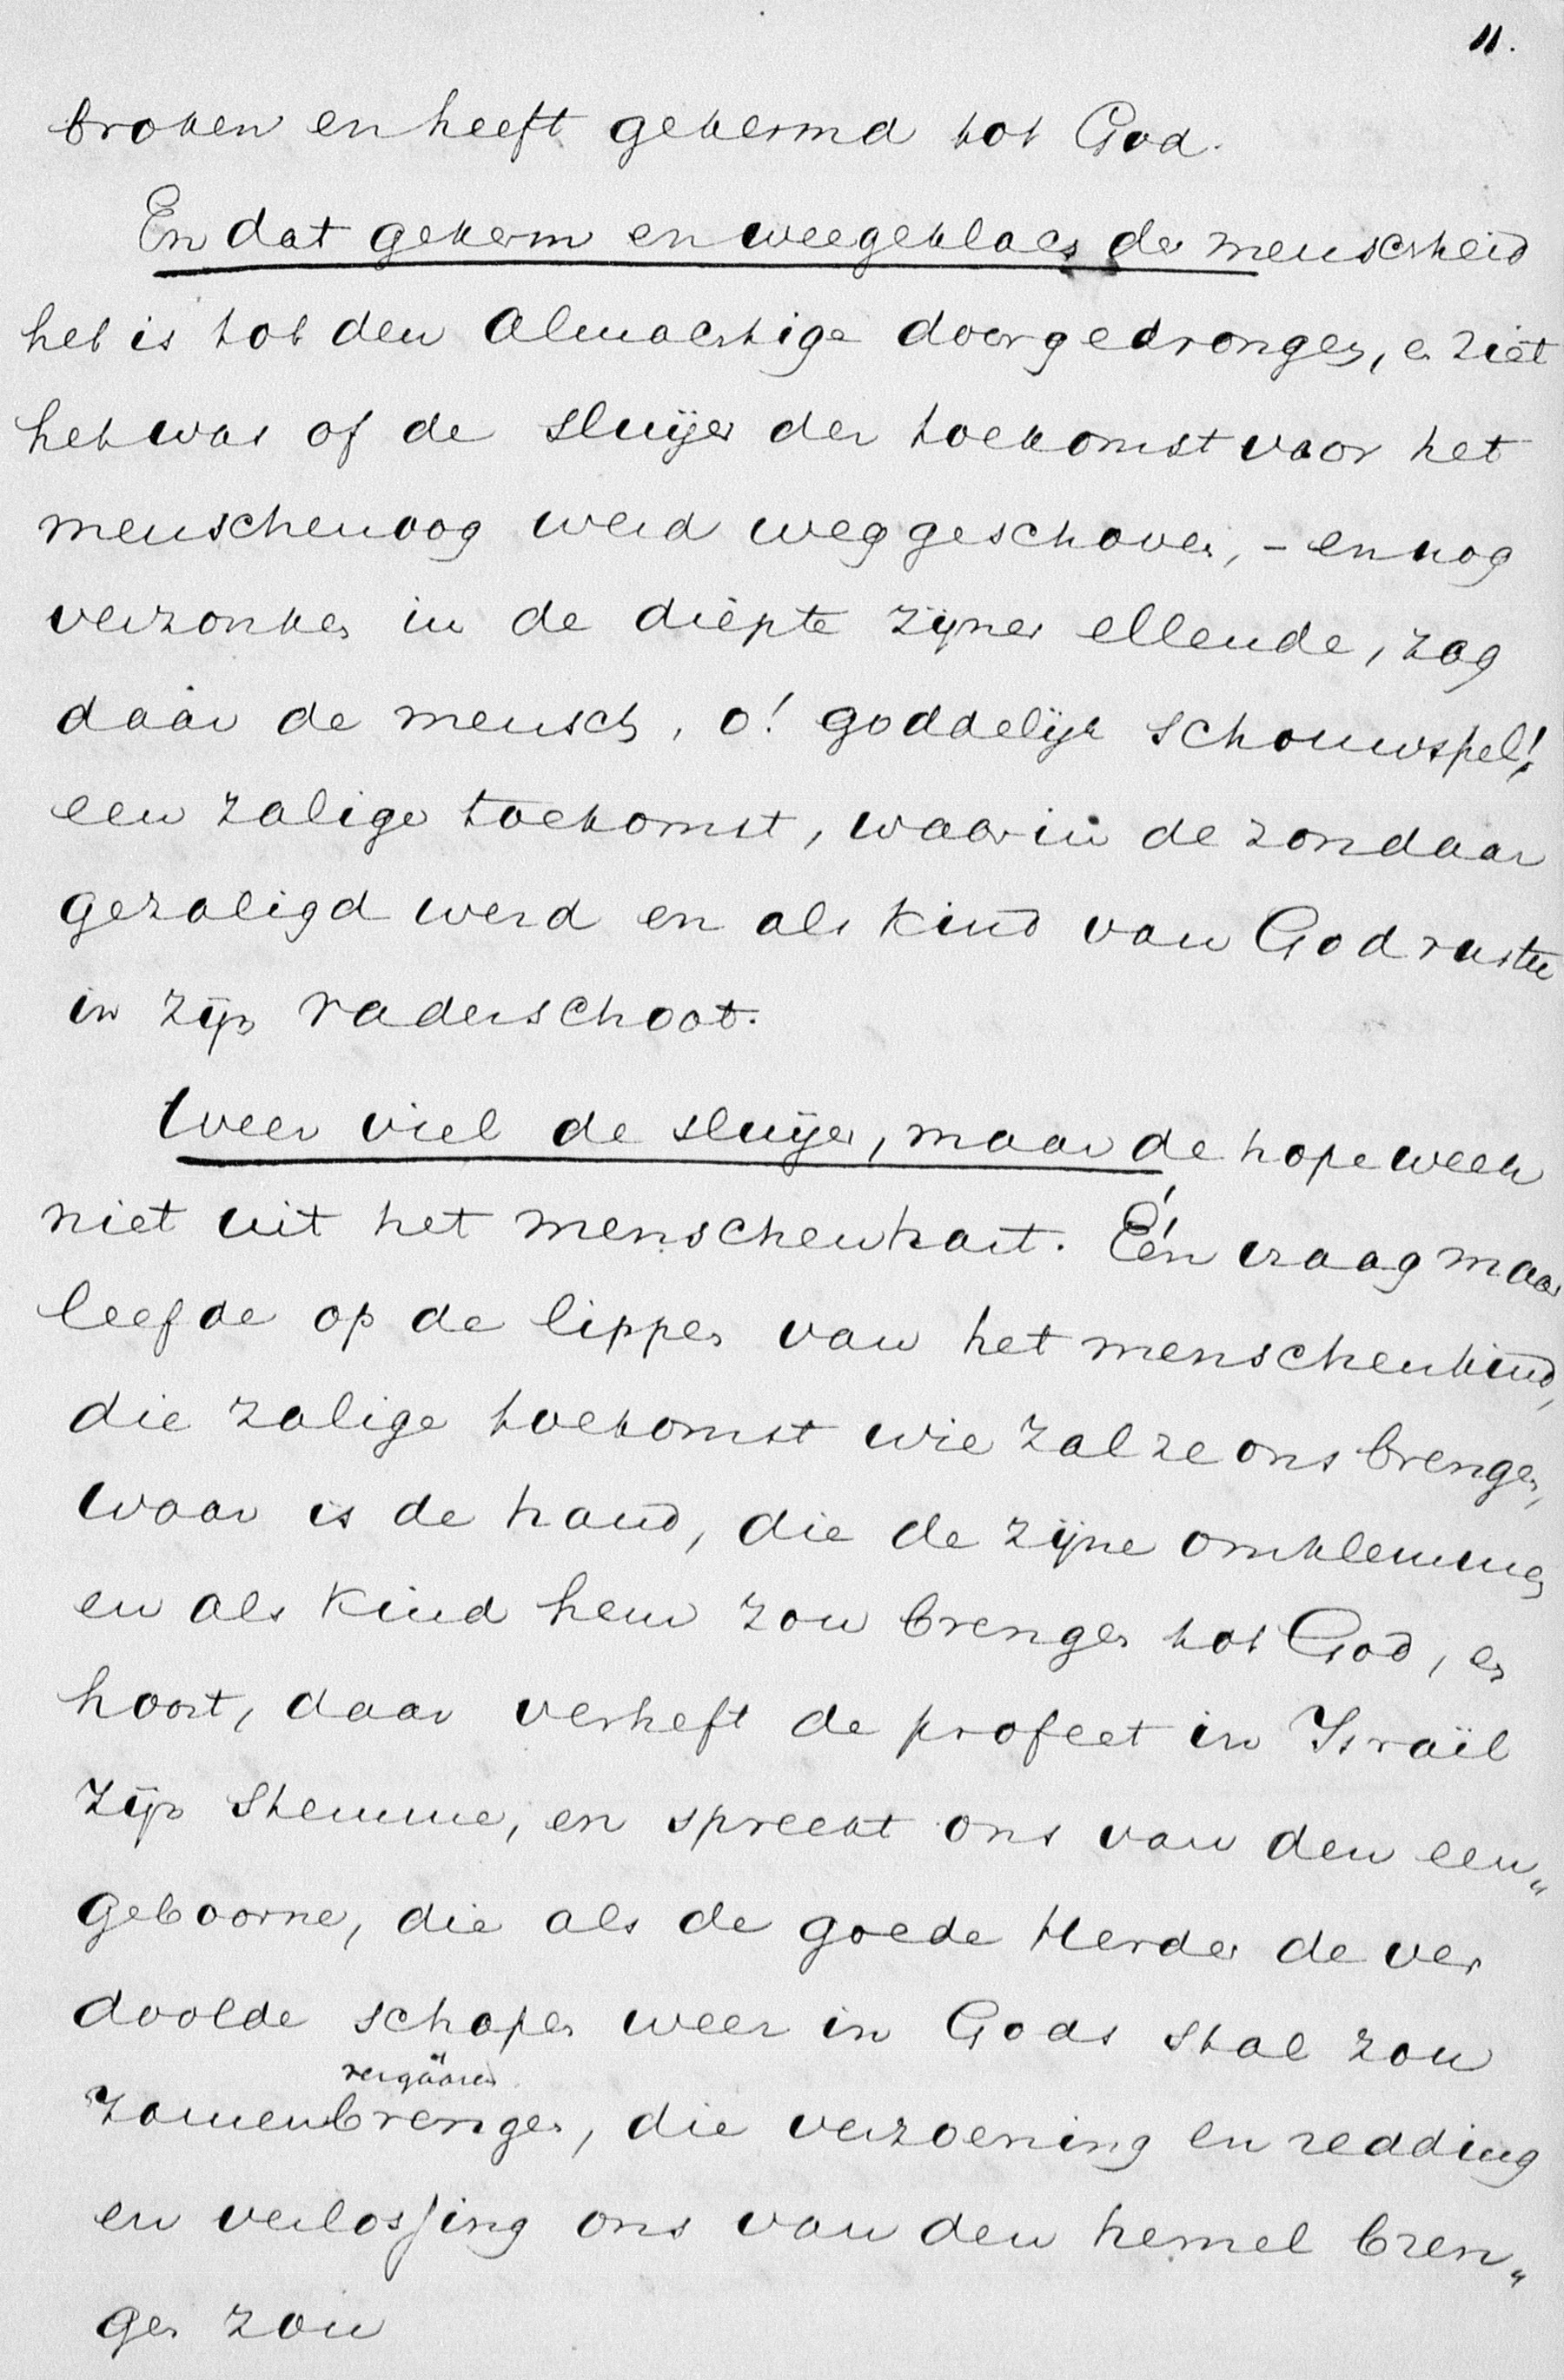 11.
broken en heeft gekermd tot God.
En dat gekerm en weegeklag der menscheid
het is tot den Almachtige doorgedrongen, en ziet
het was of de sluijer der toekomst voor het
menschenoog werd weggeschoven, - en nog
verzonken in de diepte zijner ellende, zag
daar de mensch, o! goddelijk schouwspel!,
een zalige toekomst, waarin de zondaar
gezaligd werd en als kind van God rustte
in zijn vaderschoot.
Weer viel de sluijer, maar de hope week
niet uit het menschenhart. Één vraag maar
leefde op de lippen van het menschenkind,
die zalige toekomst wie zal ze ons brengen,
waar is de hand, die de zijne omklemmen
en als kind hem zou brengen tot God, en
hoort, daar verheft de profeet in Israïl
zijn stemme, en spreekt ons van den een„
geboorne, die als de goede Herder de ver
doolde schapen weer in Gods stal zou
vergâaren
zamenbrengen, die verzoening en redding
en verlossing ons van den hemel bren„
gen zou